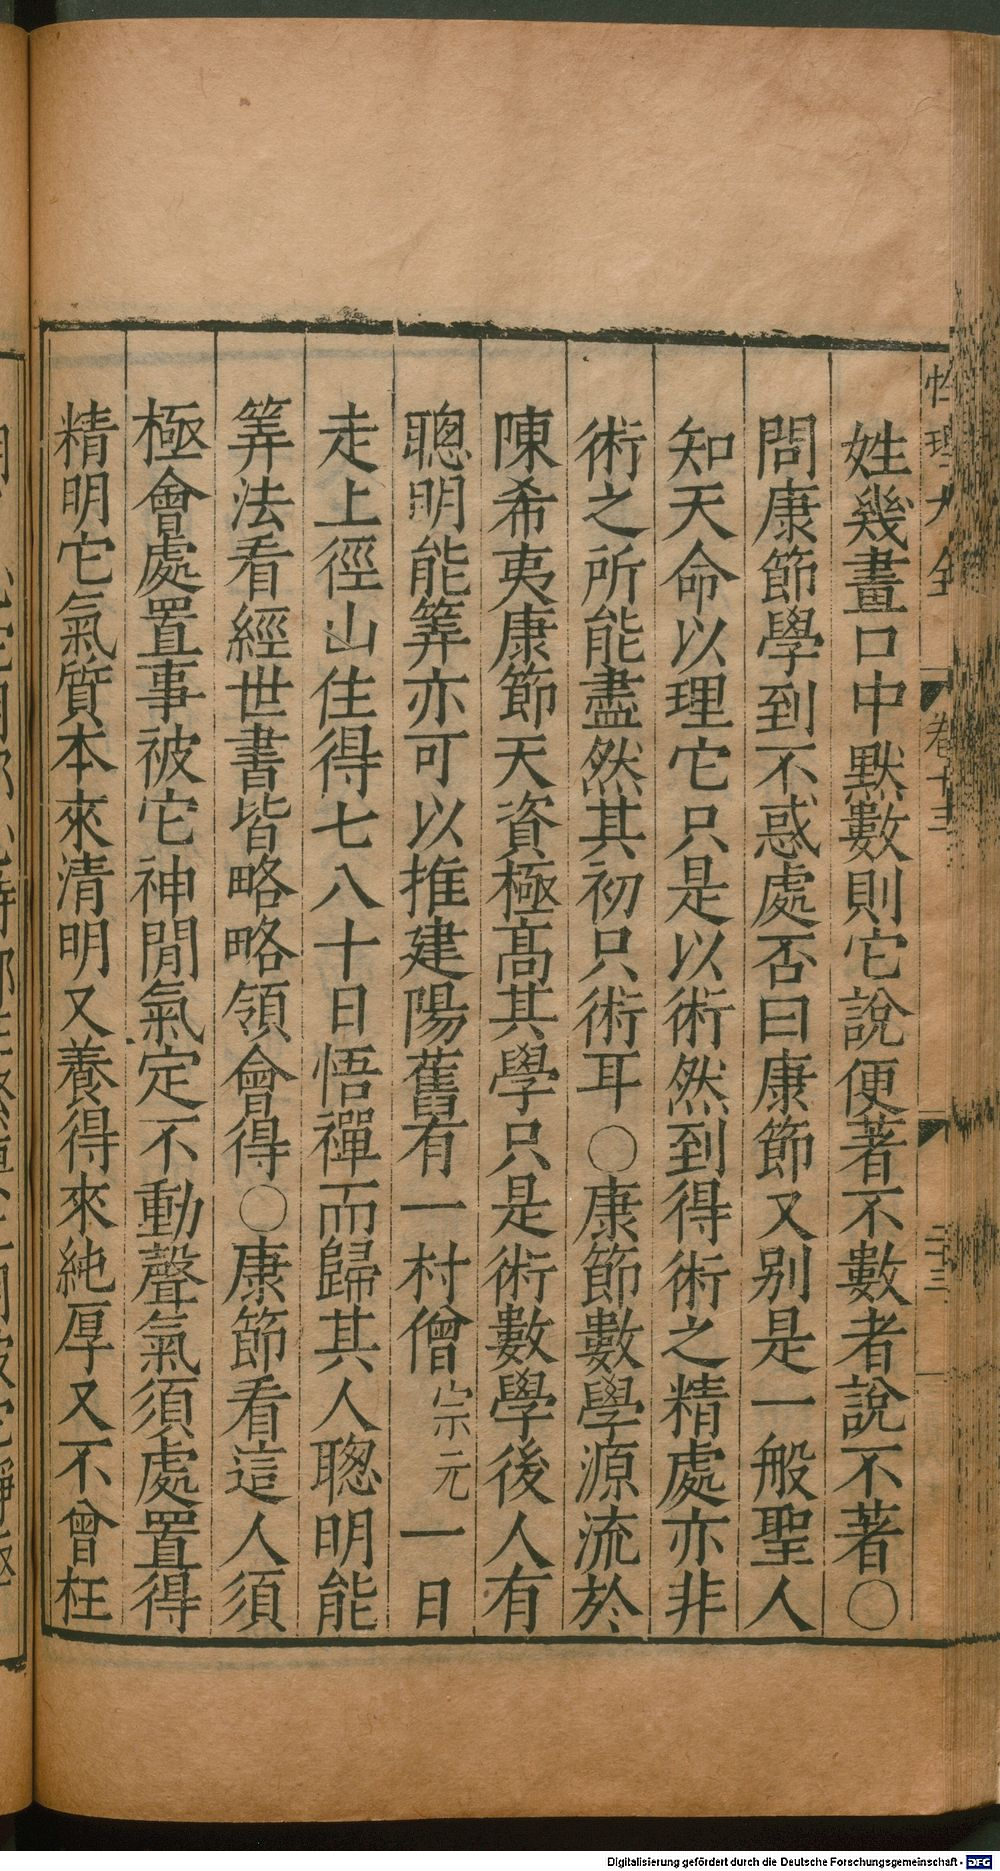 性理大全 卷十三 二十三
姓幾畫口中默數則它說便著不數者說不著〇
問康節學到不惑處否曰康節又别是一般聖人
知天命以理它只是以術然到得術之精處亦非
術之所能盡然其初只術耳〇康節數學源流於
陳希夷康節天資極高其學只是術數學後人有
聰明能筭亦可以推建陽舊有一村僧宗元一日
走上徑山住得七八十日悟禪而歸其人聰明能
筭法看經世書皆略略領會得〇康節看這人須
極會處置事被它神閒氣定不動聲氣須處置得
精明它氣質本來清明又養得來純厚又不曾枉
Digitalisierung gefördert durch die Deutsche Forschungsgemeinschaft - DFG